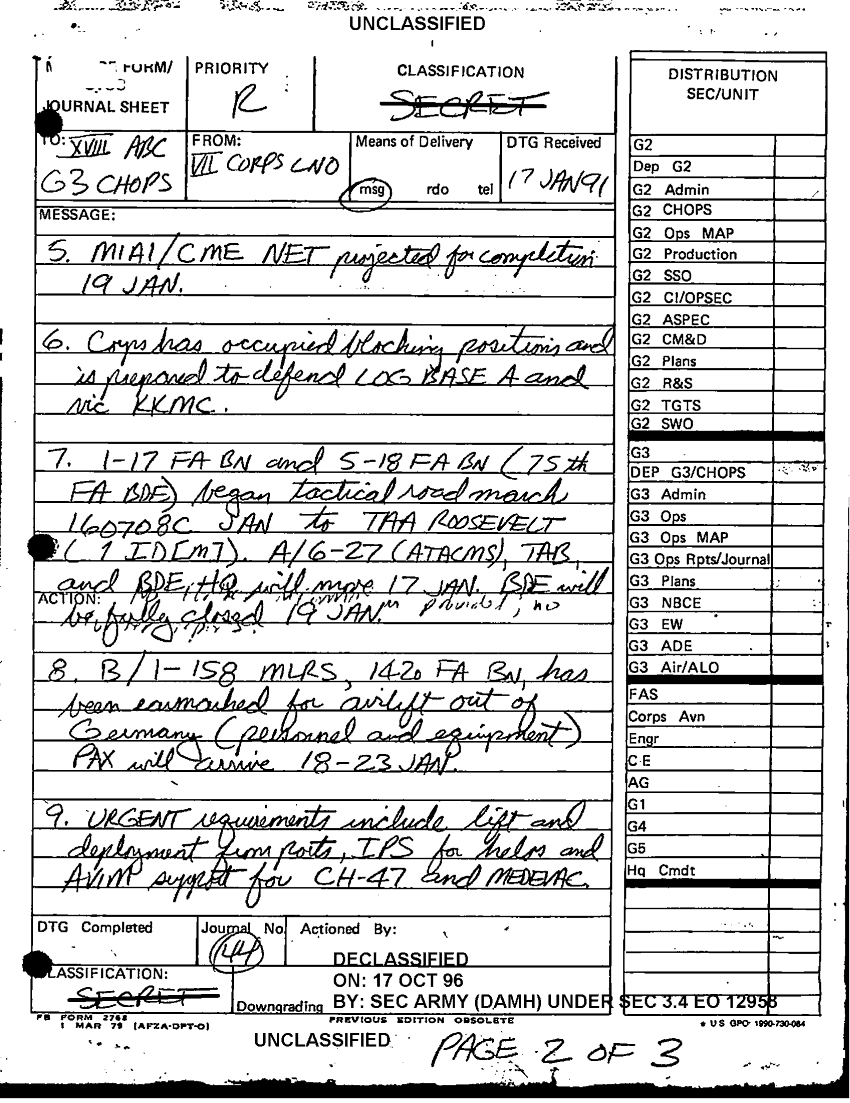 UNCLASSIFIED
FORM/
JOURNAL SHEET
PRIORITY
R
CLASSIFICATION
SECRET
TO: XVIII ABC
G3 CHOPS
FROM:
VII CORPS LNO
Means of Delivery
msg rdo tel
DTG Received
17 JAN 91
MESSAGE:
5. M1A1/CME NET projected for completion
19 JAN.
6. Corps has occupied blocking positions and
is prepared to defend LOG BASE A and
vic KKMC.
7. 1-17 FA BN and 5-18 FA BN (75th
FA BDE) began tactical road march
160708C JAN to TAA ROOSEVELT
(1 ID[M]). A/6-27 (ATACMS), TAB,
and BDE HQ will move 17 JAN. BDE will
ACTION:
be fully closed 19 JAN.
8. B/1-158 MLRS, 142d FA BN, has
been earmarked for airlift out of
Germany (personnel and equipment)
PAX will arrive 18-23 JAN.
9. URGENT requirements include lift and
deployment from ports, IPS for helos and
AVIM support for CH-47 and MEDEVAC.
DTG Completed
Journal No.
144
Actioned By:
CLASSIFICATION:
SECRET
Downgrading
DECLASSIFIED
ON: 17 OCT 96
BY: SEC ARMY (DAMH) UNDER SEC 3.4 EO 12958
FB FORM 2768
1 MAR 79 (AFZA-DPT-O)
PREVIOUS EDITION OBSOLETE
★ US GPO: 1990-730-084
UNCLASSIFIED
PAGE 2 OF 3
DISTRIBUTION
SEC/UNIT
G2
Dep G2
G2 Admin
G2 CHOPS
G2 Ops MAP
G2 Production
G2 SSO
G2 CI/OPSEC
G2 ASPEC
G2 CM&D
G2 Plans
G2 R&S
G2 TGTS
G2 SWO
G3
DEP G3/CHOPS
G3 Admin
G3 Ops
G3 Ops MAP
G3 Ops Rpts/Journal
G3 Plans
G3 NBCE
G3 EW
G3 ADE
G3 Air/ALO
FAS
Corps Avn
Engr
C-E
AG
G1
G4
G5
Hq Cmdt